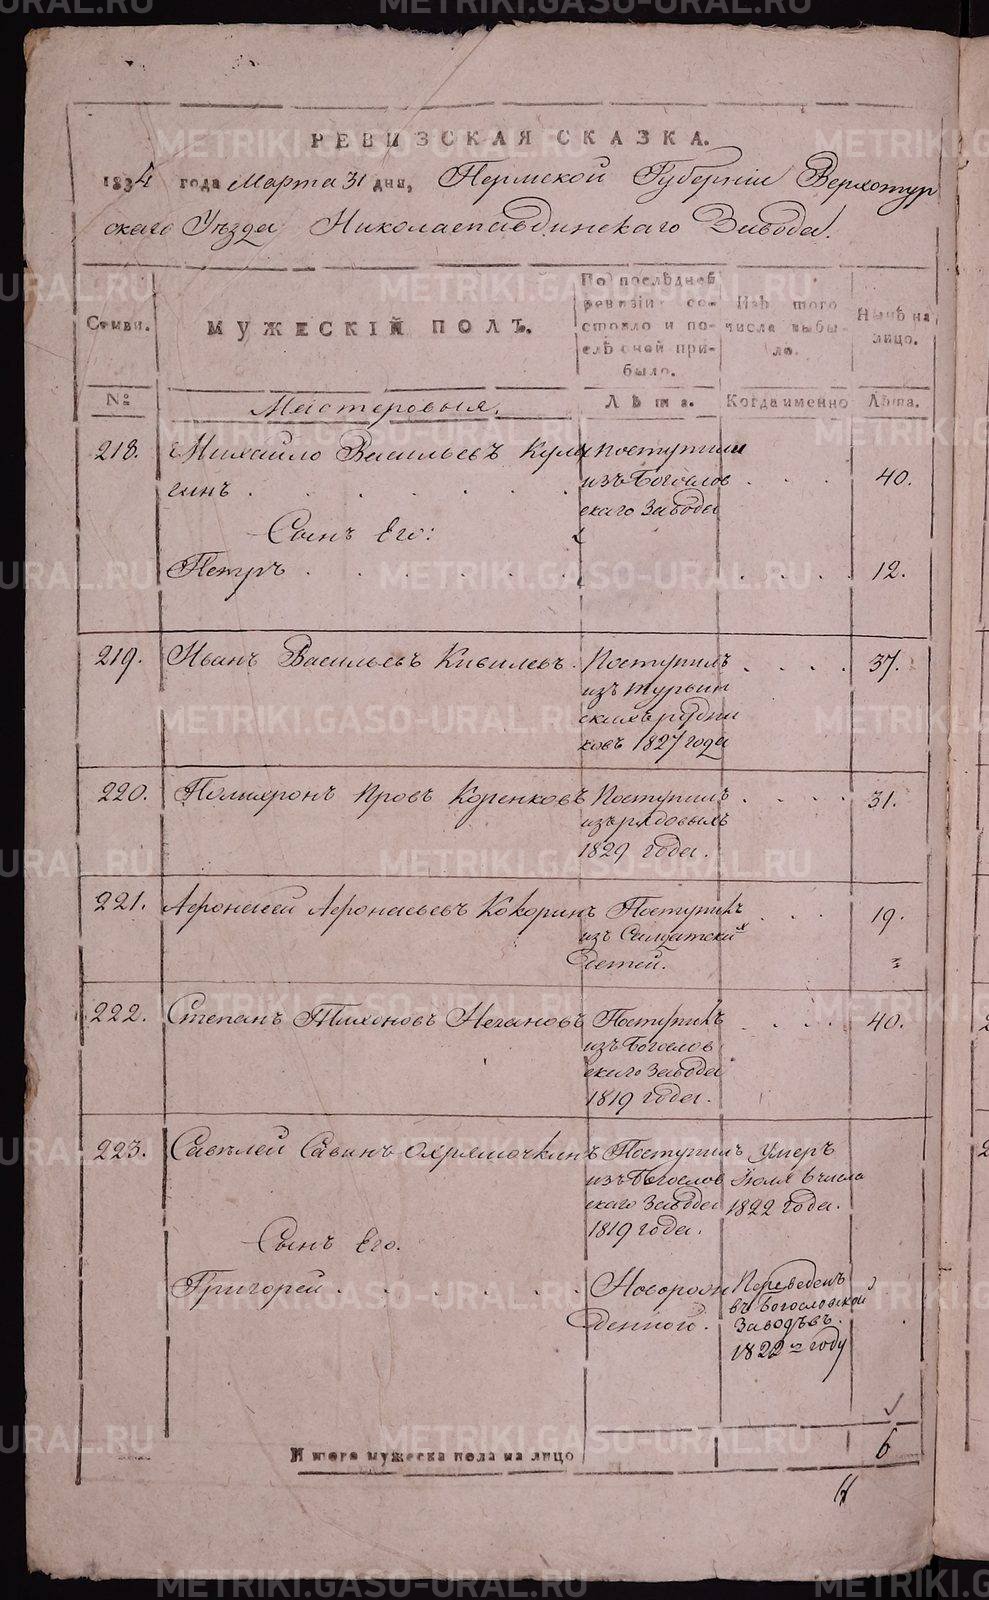 РЕВИЗСКАЯ СКАЗКА.
1834 года Марта 31 дня, Пермской Губернiи Верхотур
скаго Уѣзда Николаепавдинскаго Завода.
Семьи.
МУЖЕСКIЙ ПОЛЪ.
По послѣдней
ревизiи со-
стояло и по-
слѣ оной при-
было.
Изъ того
числа выбы-
ло.
Нынѣ на
лицо.
№
Мастеровыя.
Лѣта.
Когда именно
Лѣта.
218. Михайло Васильевъ Куля поступили
гинъ . . . . . . изъ Богослов . . . 40.
скаго Завода
Сынъ Его:
Петръ . . . . . . . . . . 12.
219. Иванъ Васильевъ Кивилевъ. Поступилъ . . . . 37.
изъ Турьин
скихъ рудни
ковъ 1827 года
220. Полихронъ Провъ Коренковъ Поступилъ . . . . 31.
изъ рядовыхъ
1829 года.
221. Афонасей Афонасьевъ Кокоринъ Поступилъ . . . 19.
изъ Салдатских
детей.
222. Степанъ Тихоновъ Негановъ Поступилъ . . . . 40.
изъ Богослов
скаго Завода
1819 года.
223. Савѣлей Савинъ Охряпочкинъ Поступилъ Умеръ
изъ Богослов Iюля 6 числа
скаго Завода 1822 года.
1819 года.
Сынъ Его.
Григорей . . . . . . . Новорож Переведенъ
денной. въ Богословской
Заводъ въ
1822м году
Итого мужеска пола на лицо 6
METRIKI.GASO-URAL.RU